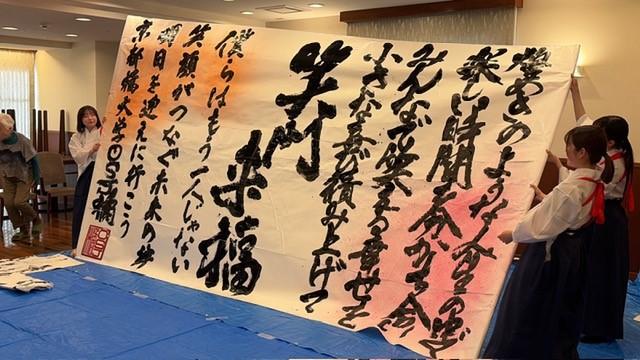 のような今日の
楽しい時間を分かち合い
みんなで笑える幸せを
小さな喜び積み上げて
笑門
来福
僕らはもう一人じゃない
笑顔がつなぐ未来の
明日を迎えに行こう
京都橘大学